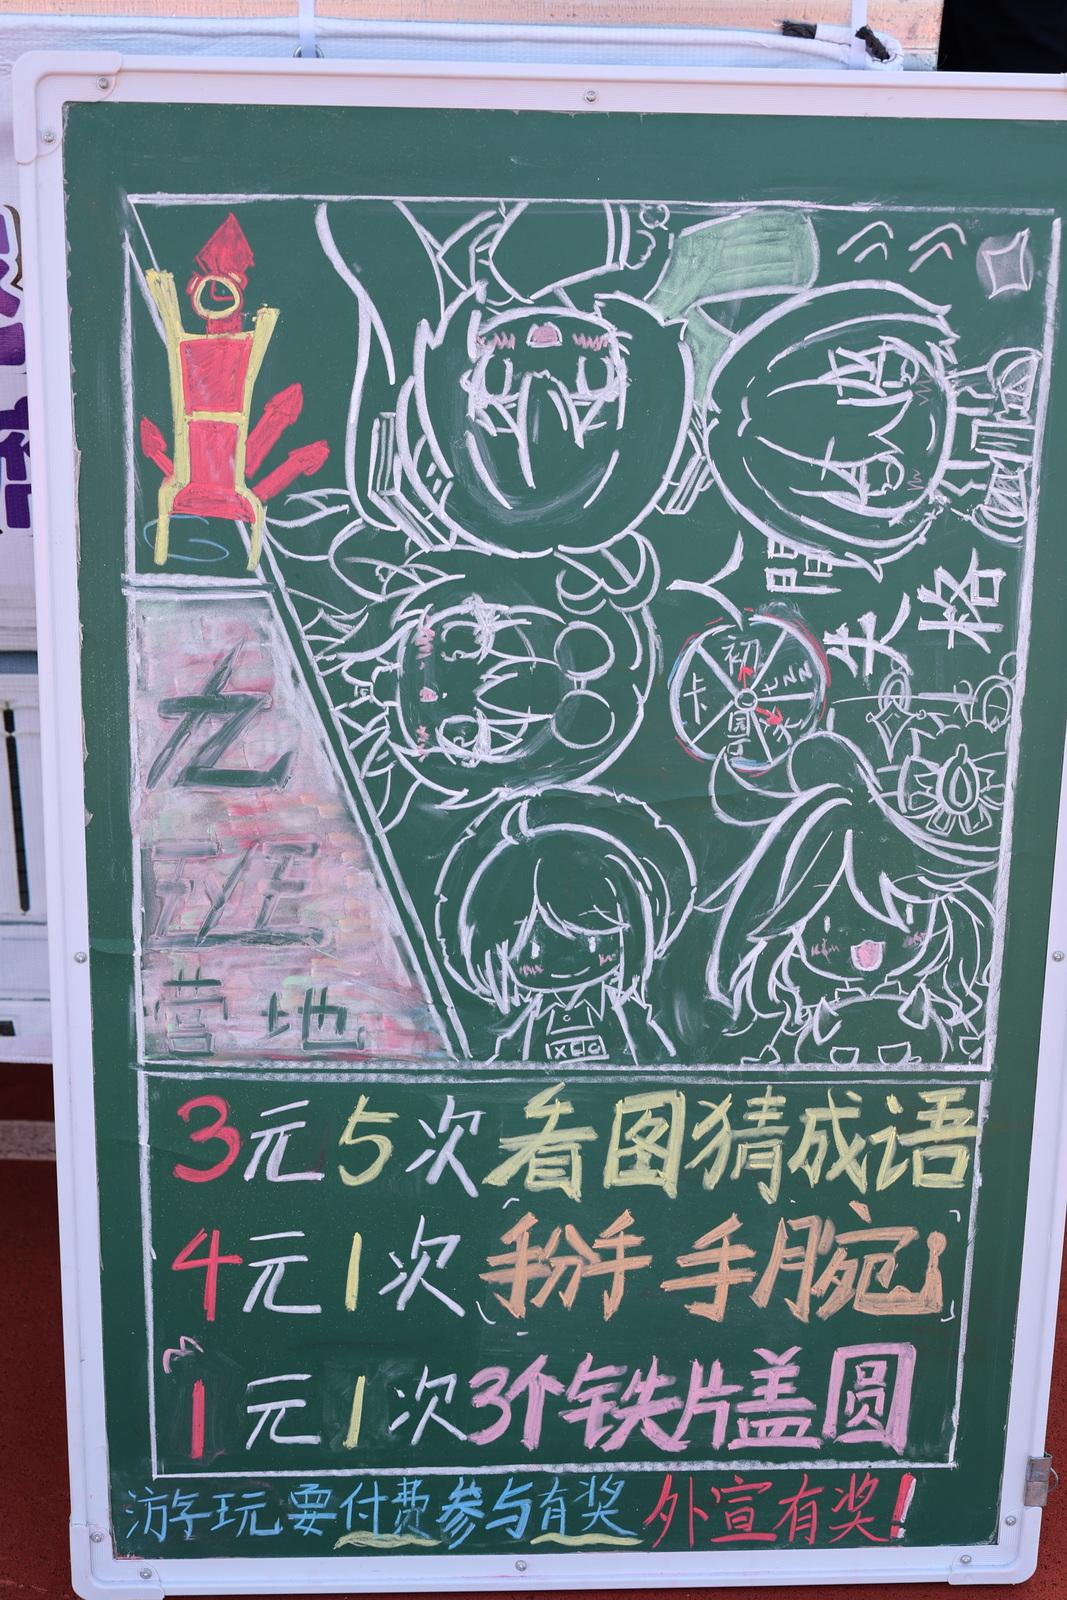 七
班
营地
人間失格
初
卡
园
3元5次看图猜成语
4元1次掰手手腕!
1元1次3个铁片盖圆
游玩要付费参与有奖 外宣有奖!